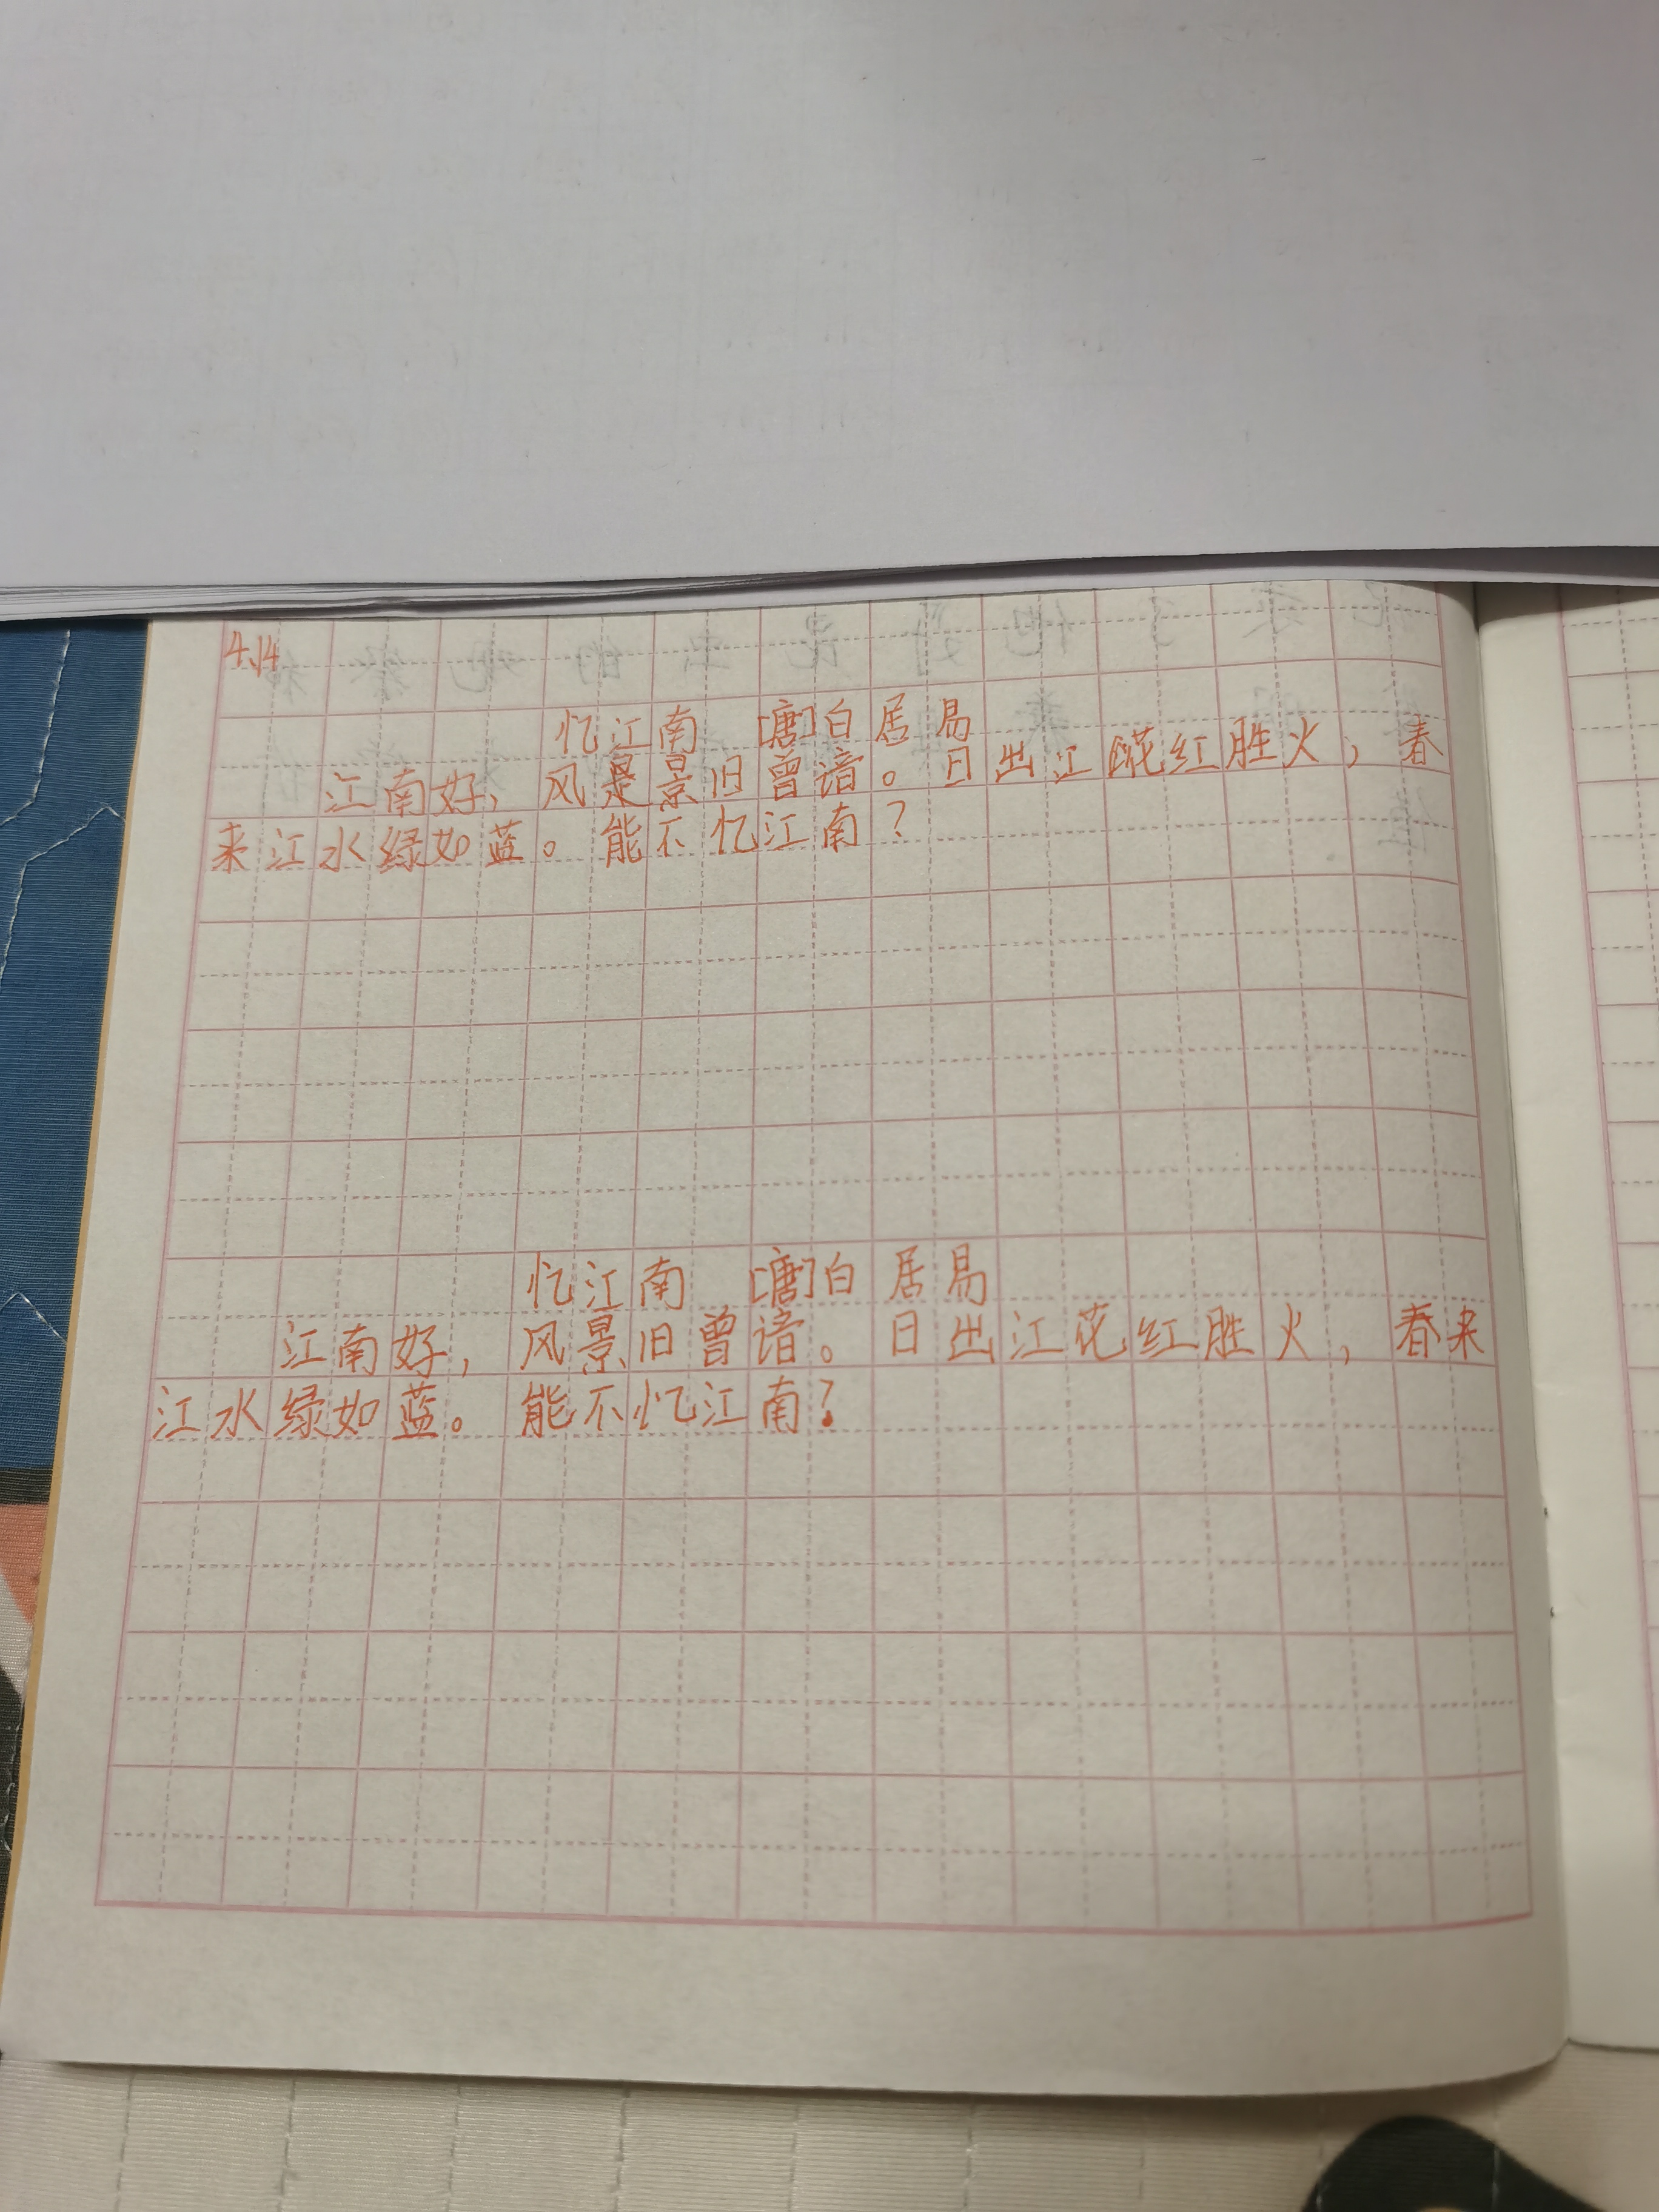 4.14
忆江南 [唐]白居易
江南好，风是景旧曾谙。日出江花红胜火，春
来江水绿如蓝。能不忆江南？
忆江南 [唐]白居易
江南好，风景旧曾谙。日出江花红胜火，春来
江水绿如蓝。能不忆江南？